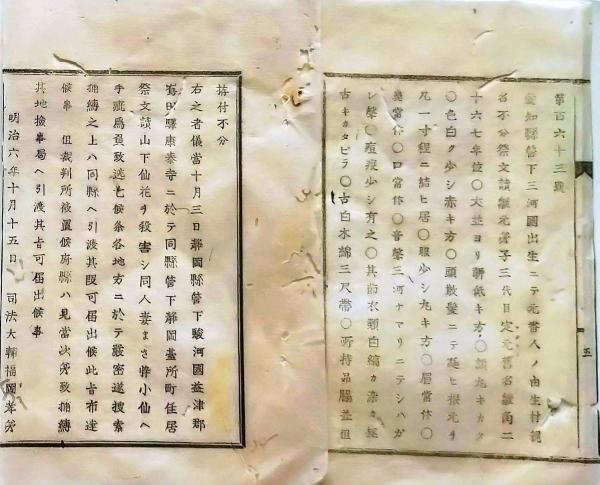 第百六十三號
愛知縣管下三河國出生ニテ元當人ノ由生村親
名不分祭文讀龜元秀子三代目定元舊名龜商二
十六七年位〇大並ヨリ軒低キ方〇顔丸キカタ
〇色白ク少シ赤キ方〇頭散髪ニテ延ヒ根元ヲ
凡一寸程ニ結ヒ居〇眼少シ丸キ方〇眉當体〇
鼻當体〇口當体〇音聲三河ナマリニテシハガ
レ聲〇痘痕少シ有之〇其節衣類白縞カ漆々経
古キカタビラ〇古白木綿三尺帶〇所持品脇差壹
拵付不分
右之者儀當十月三日靜岡縣管下駿河國益津郡
海田驛康泰寺ニ於テ同縣管下靜岡臺所町住居
祭文讀山下仙花ヲ殺害シ同人妻まさ倅小仙ヘ
手疵爲負致逃亡候条各地方ニ於テ嚴密遂捜索
捕縛之上ハ同縣ヘ引渡其段可届出候此旨布達
候事　但裁判所被置候府縣ハ見當次第致捕縛
其地撿事局ヘ引渡其旨可届出候事
明治六年十月十五日　司法大輔福岡孝弟
五